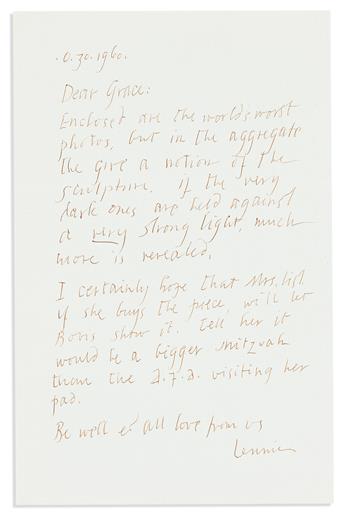 .0.30.1960.
Dear Grace:
Enclosed are the world's worst
photos, but in the aggregate
the give a notion of the
sculpture. if the very
dark ones are held against
a very strong light, much
more is revealed.
I certainly hope that Mrs. List
if she buys the piece, will let
Boris show it. Tell her it
would be a bigger mitzvah
than the A.F.A. visiting her
pad.
Be well & all love from us
Lennie